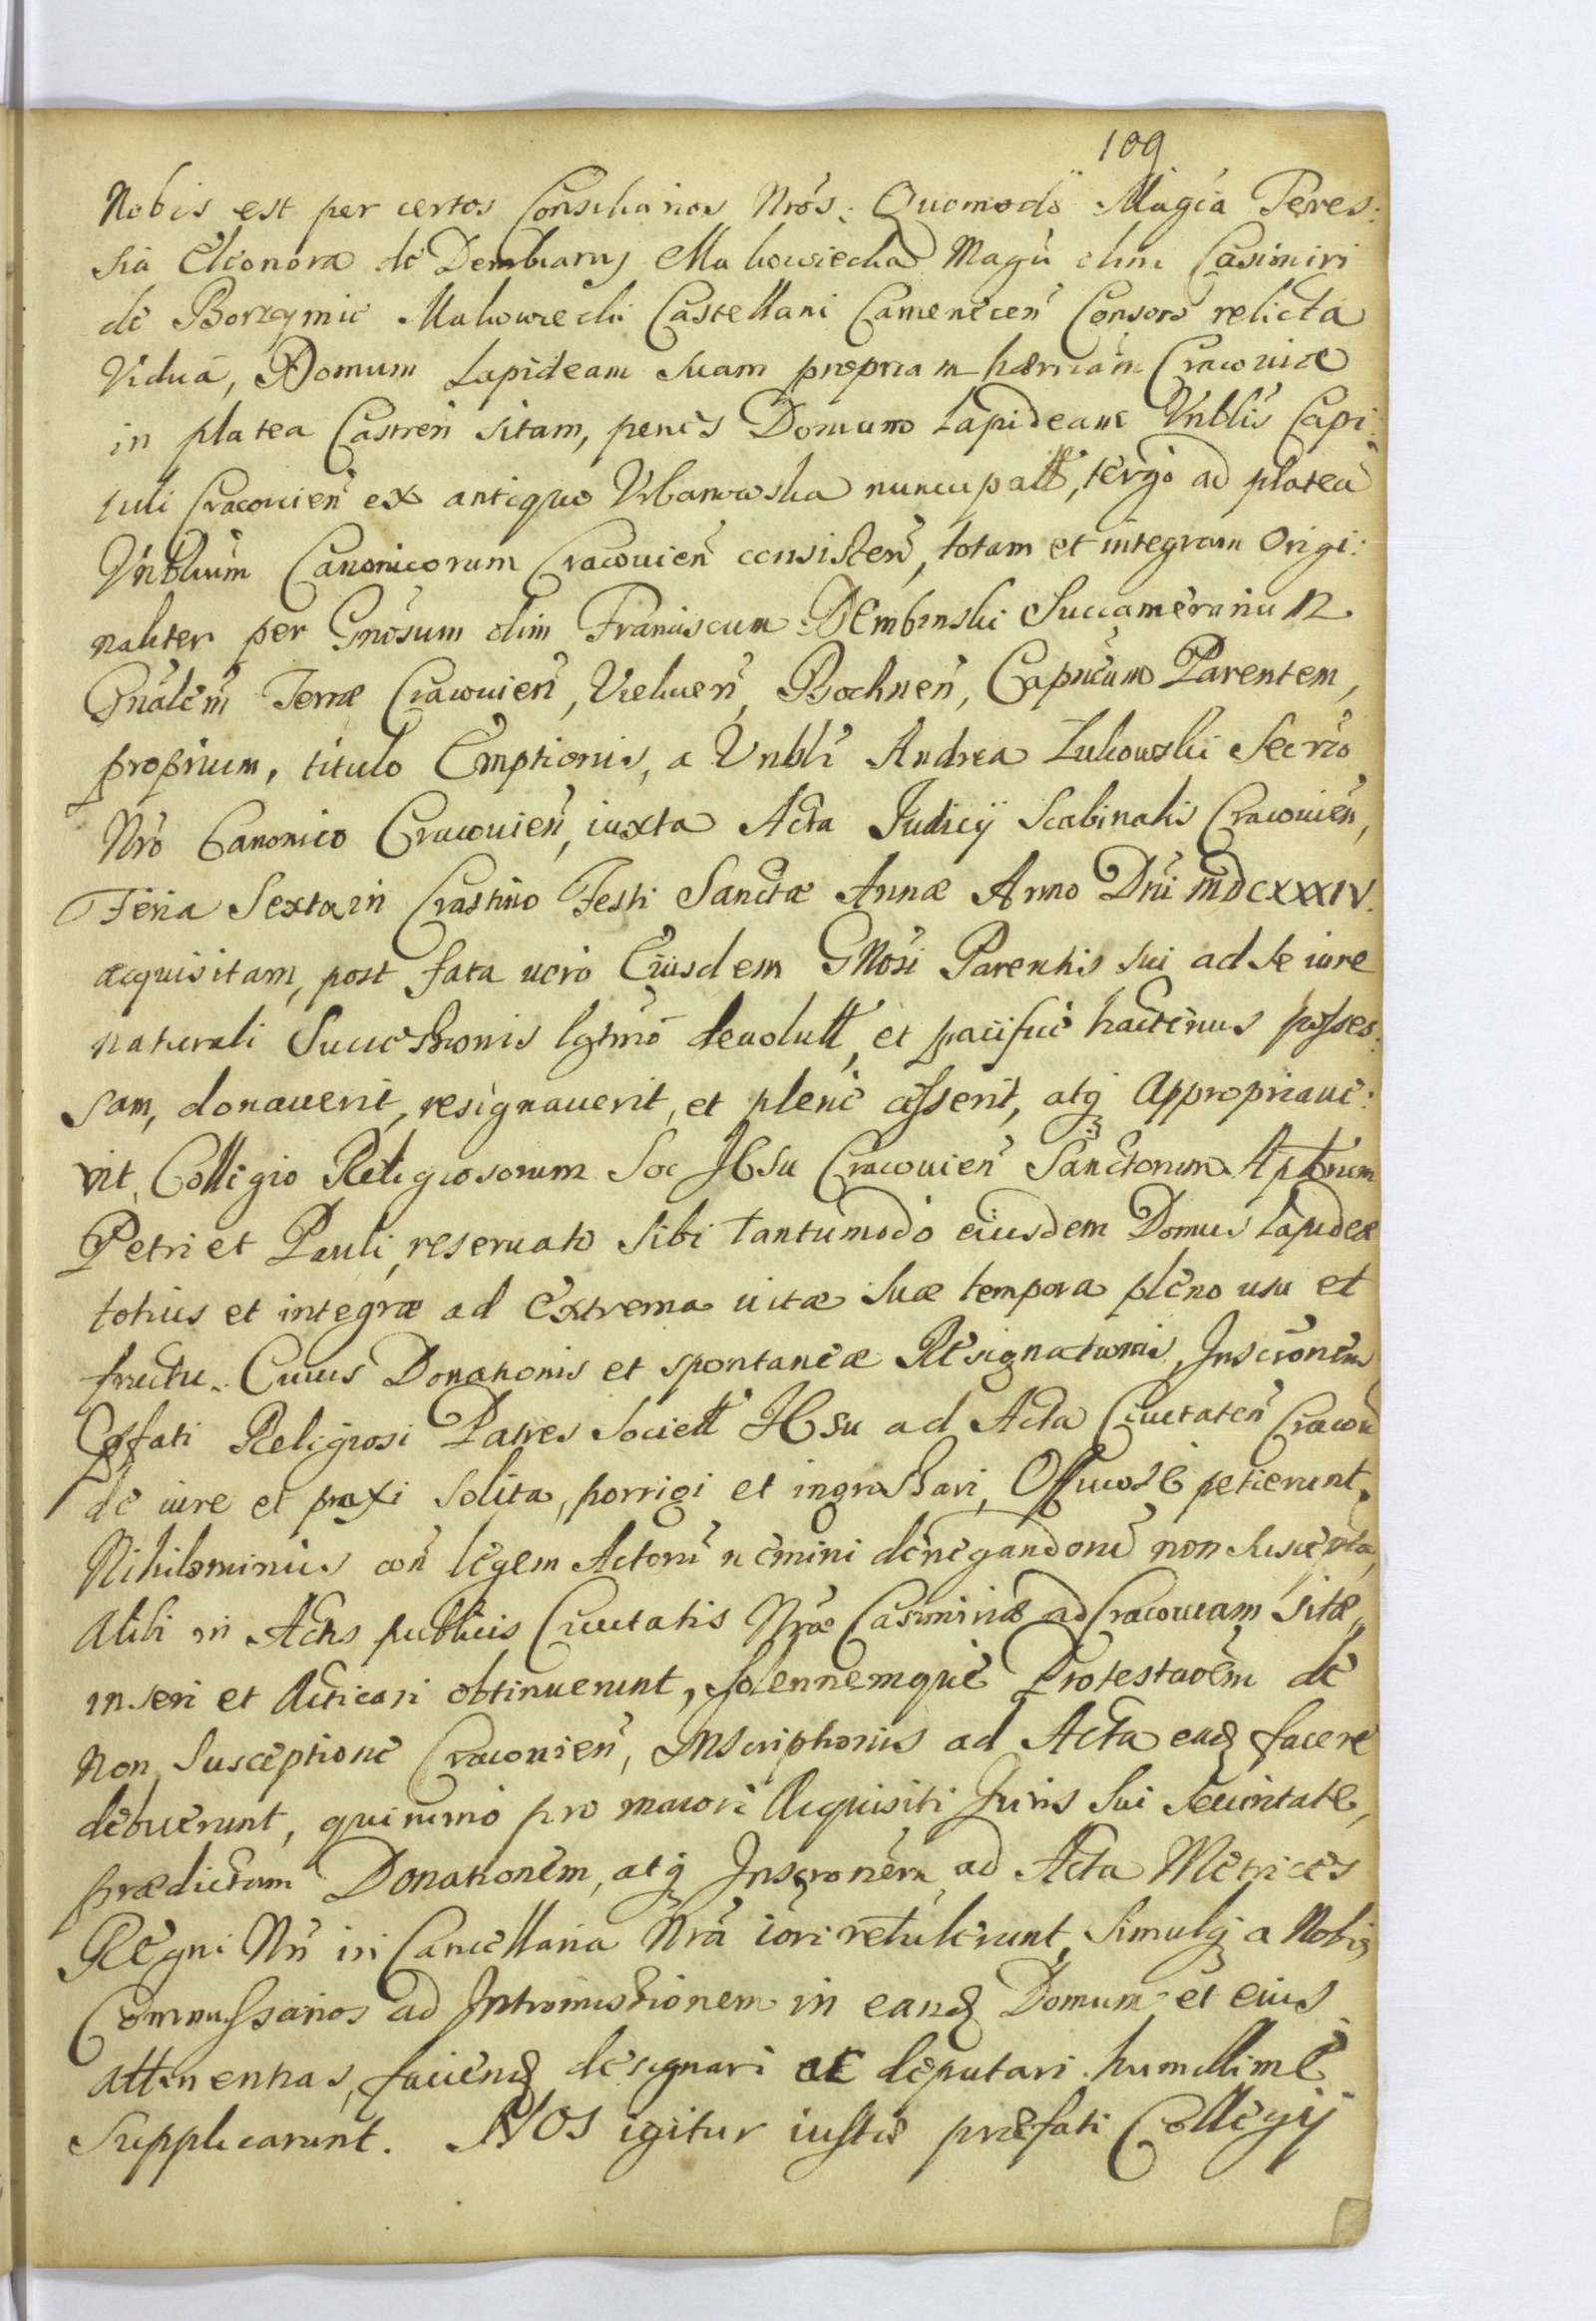 109
Nobis est per certos Consiliarios Nrós. Quomodo Magca Teres:
sia Eleonora de Dembiany Makowiecka Magci olim Casimiri
de Borzymie Makowiecki Castellani Camenecen Consors relicta
Vidua, Domum Lapideam suam propriam hæriam Cracouiæ
in platea Castren sitam, penes Domum Lapideam Vnblis Capi:
tuli Cracouien ex antiquo Vrbanowska nuncupatt, tergo ad plateã
Vnblium Canonicorum Cracouien consisten, totam et integram Origi:
naliter per Gnosum olim Franciscum Dembinski Succamerarium
Gnälem Terræ Cracouien, Vieluen, Bochnen, Capneum Parentem,
proprium, titulo Emptionis, a Vnbli Andrea Zukowski Secrio
Nro Canonico Cracouien, iuxta Acta Judicij Scabinalis Cracouien,
Feria Sexta in Crastino Festi Sanctæ Annæ Anno Dni MDCXXXIV.
acquisitam, post fata uero Eiusdem GNosi Parentis sui ad se iure
naturali Successionis lgtmo deuolutt, et pacifice hactenus posses:
sam, donauerit, resignauerit, et plene cesserit, atq Appropriaue:
rit, Collegio Religiosorum Soc JEsu Cracouien Sanctorum Aptorum
Petri et Pauli, reseruato sibi tantumodo eiusdem Domus Lapideæ
totius et integræ ad extrema uitæ suæ tempora pleno usu et
fructu. Cuius Donationis et spontaneæ Resignationis, Inscrönem
Psfati Religiosi Patres Societt JEsu ad Acta Ciuitaten Cracou
de iure et praxi solita, porrigi et ingrossari, Officiose petierunt.
Nihilominus con legem Actorum nemini denegandorum non suscepta,
alibi in Actis publicis Ciuitatis Nræ Casimiriæ ad Cracouiam sitæ,
inseri et Acticari obtinuerunt, solennemque Protestaoem de
non susceptione Cracouien, Inscriptionis ad Acta ead facere
debuerunt, quinimo pro maiori Acquisiti Juris sui securitate,
prædictam Donationem, atq Inscronem ad Acta Metrices
Regni Nri in Cancellaria Nra iori retulerunt, simulq a Nobis
Commissarios ad Intromissionem in eand Domum et eius
attinentias, faciend designari ac deputari humillime
supplicarunt. NOS igitur iustæ præfati Collegij